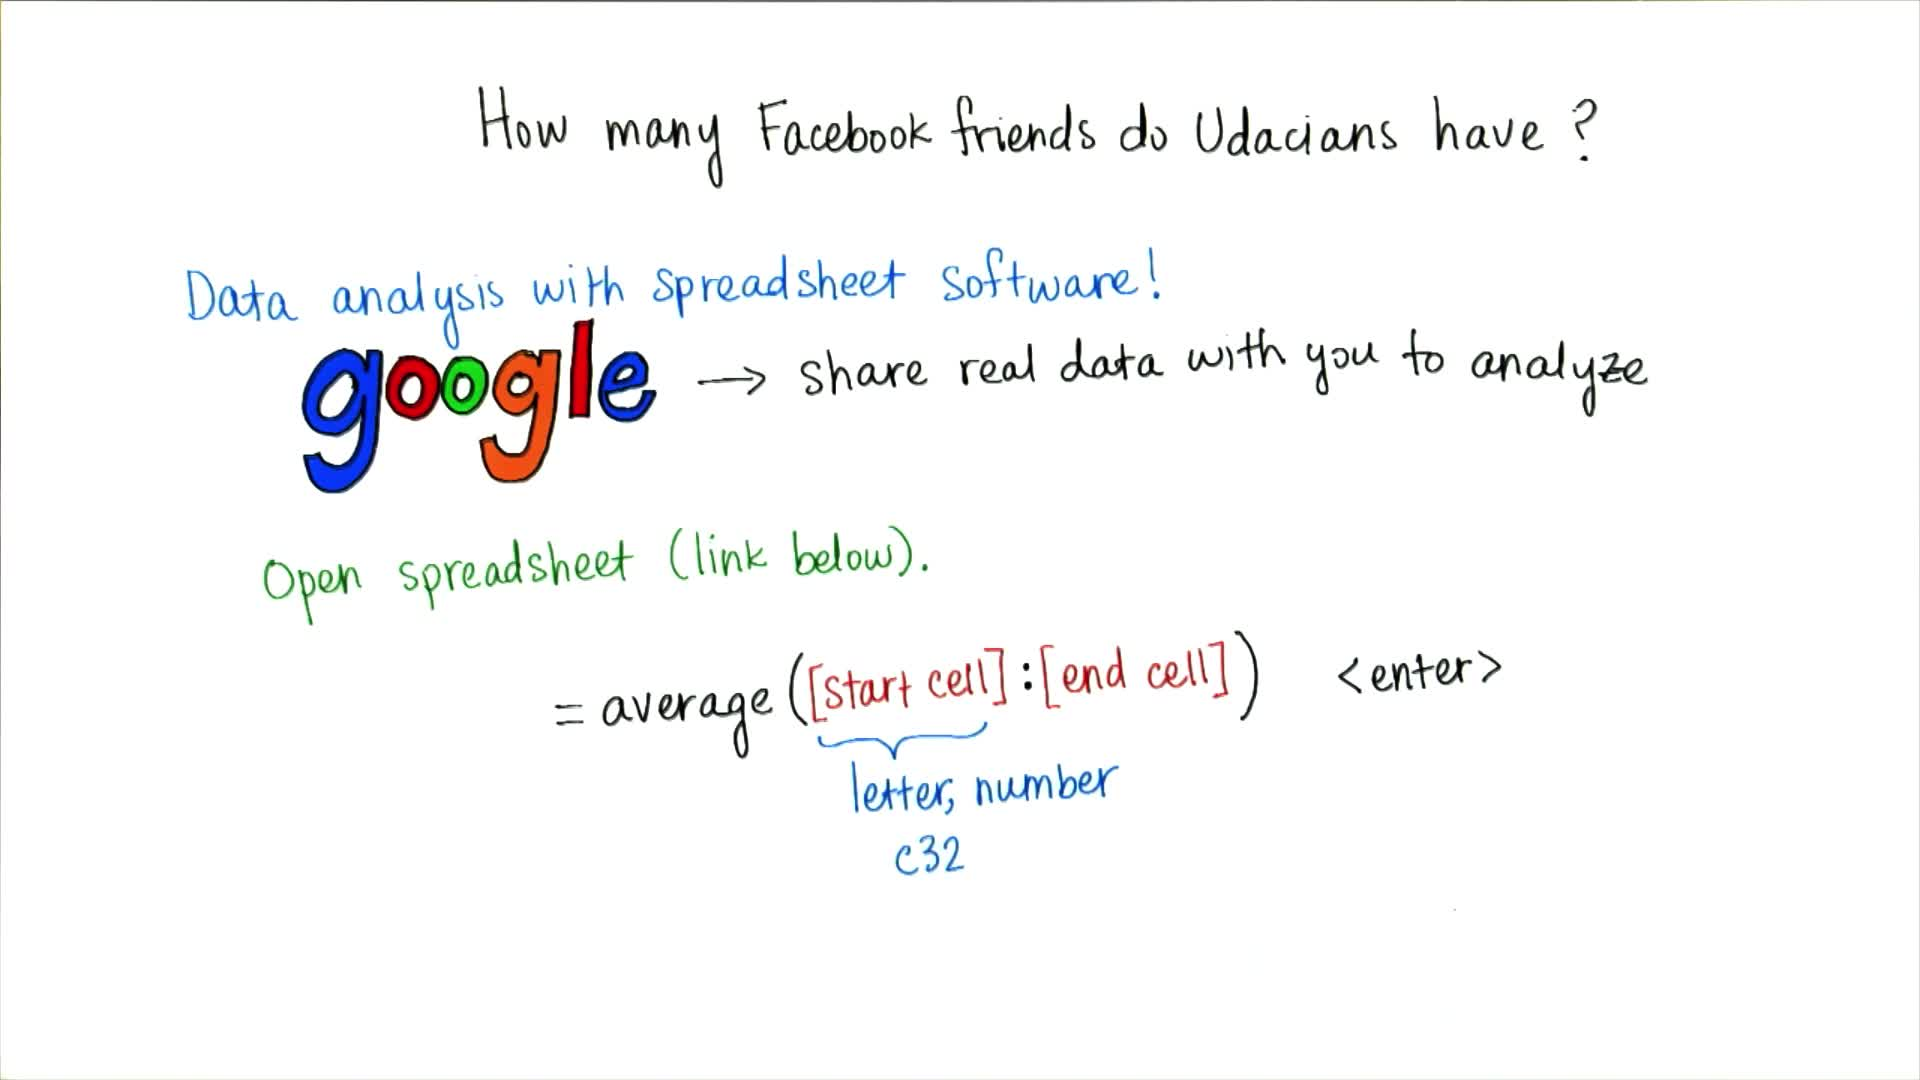 How many Facebook friends do Udacians have?
Data analysis with spreadsheet software!
google → share real data with you to analyze
Open spreadsheet (link below).
= average ([start cell]:[end cell]) <enter>
letter, number
c32